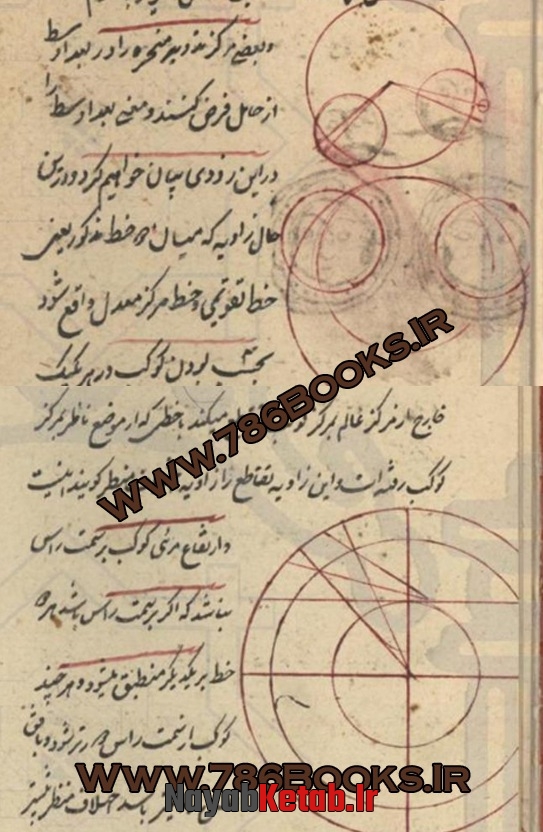 و بعضی مرکز تدویر متحیره را در بعد اوسط
از حامل فرض کنند و معنی بعد اوسط را
در این زودی بیان خواهیم کرد و درین
حال زاویه که میان خط مذکور یعنی
خط تقویمی و خط مرکز معدل واقع شود
بحسب بودن کوکب در هر یک
خارج از مرکز عالم بمرکز میکند با خطی که از موضع ناظر بمرکز
کوکب رفته است و این زاویه تقاطع را زاویه منظر کویند اینست
و ارتفاع مرئی کوکب بر سمت راس
نباشد که اکر بر سمت راس باشد هر
خط بر یکدیکر منطبق میشود و هر چند
کوکب از سمت راس تر شود و با فق
باشد اختلاف منظر بیشتر
www.786Books.iR
www.786Books.iR
NayabKetab.Ir